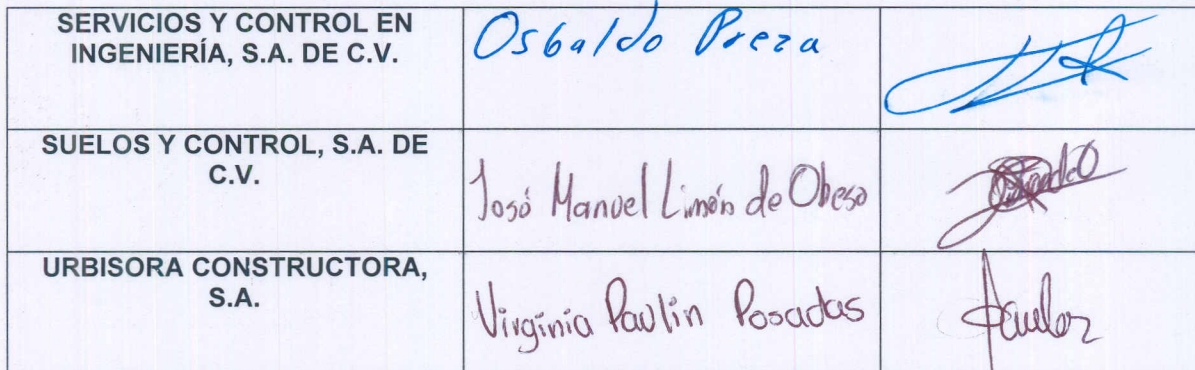 SERVICIOS Y CONTROL EN
INGENIERÍA, S.A. DE C.V.
Osbaldo Preza
SUELOS Y CONTROL, S.A. DE
C.V.
José Manuel Limón de Obeso
URBISORA CONSTRUCTORA,
S.A.
Virginia Paulin Posadas